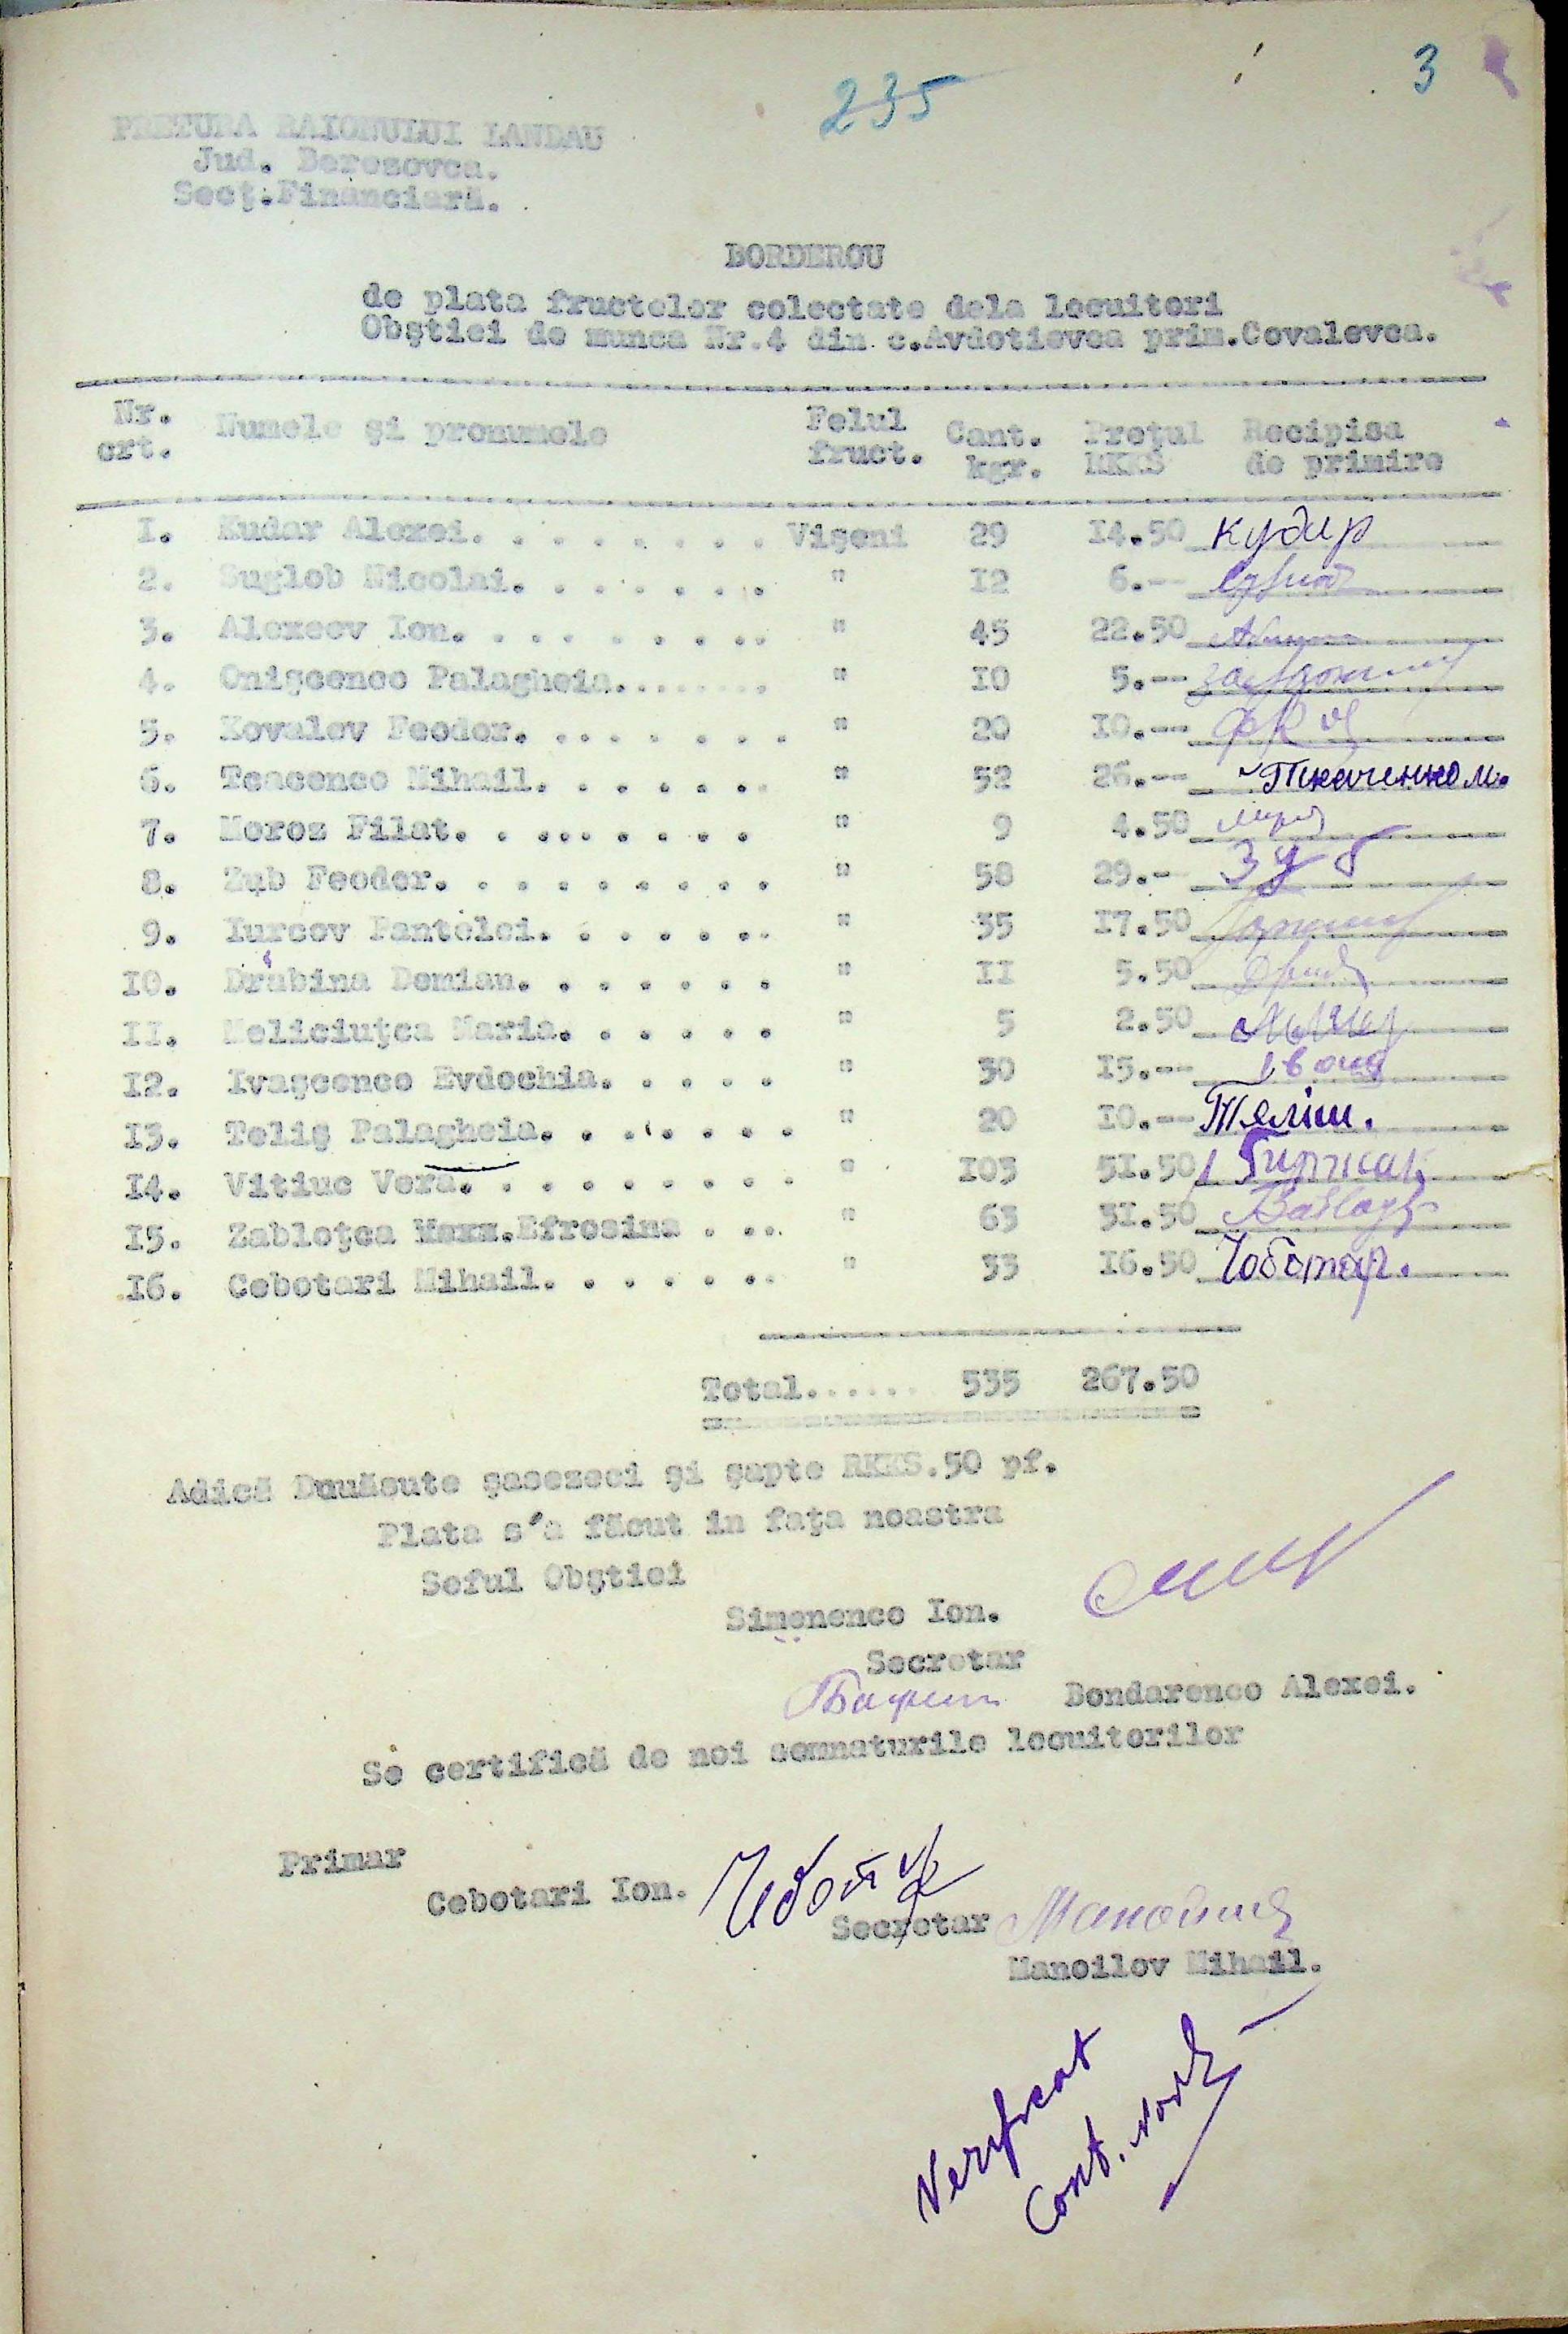 235
3
PRETURA RAIONULUI LANDAU
Jud. Berezovca.
Secţ.Financiară.
BORDEROU
de plata fructelor colectate dela locuitori
Obştiei de munca Nr.4 din c.Avdotievca prim.Covalevca.
Nr. crt. Numele şi pronumele Felul fruct. Cant. kgr. Preţul RKKS Recipisa de primire
I. Kudar Alexei. . . . . . . . Vişeni 29 I4.50 Кудир
2. Suglob Nicolai. . . . . . . " I2 6.--
3. Alexeev Ion. . . . . . . . . " 45 22.50
4. Onişcenco Palagheia........ " I0 5.--
5. Kovalev Feodor. . . . . . . . " 20 I0.--
6. Tcacenco Mihail. . . . . . . " 52 26.-- Ткаченко м.
7. Moroz Filat. . . . . . . . . " 9 4.50
8. Zub Feodor. . . . . . . . . " 58 29.- Зуб
9. Iurcov Pantelei. . . . . . . " 35 I7.50
I0. Drabina Demian. . . . . . . " II 5.50
II. Meliciuţca Maria. . . . . . " 5 2.50
I2. Ivaşcenco Evdochia. . . . . " 30 I5.--
I3. Teliş Palagheia. . . . . . . " 20 I0.-- Теліш.
I4. Vitiuc Vera. . . . . . . . . " I03 5I.50
I5. Zabloţca Maxx.Efrosina . ... " 63 3I.50
I6. Cebotari Mihail. . . . . . . " 33 I6.50 Чоботар.
Total...... 535 267.50
Adică Douăsute şasezeci şi şapte RKKS.50 pf.
Plata s'a făcut in faţa noastra
Seful Obştiei
Simonenco Ion.
Secretar
Bondarenco Alexei.
Se certifică de noi semnaturile locuitorilor
Primar
Cebotari Ion.
Secretar
Manoilov Mihail.
Verificat
Cont.